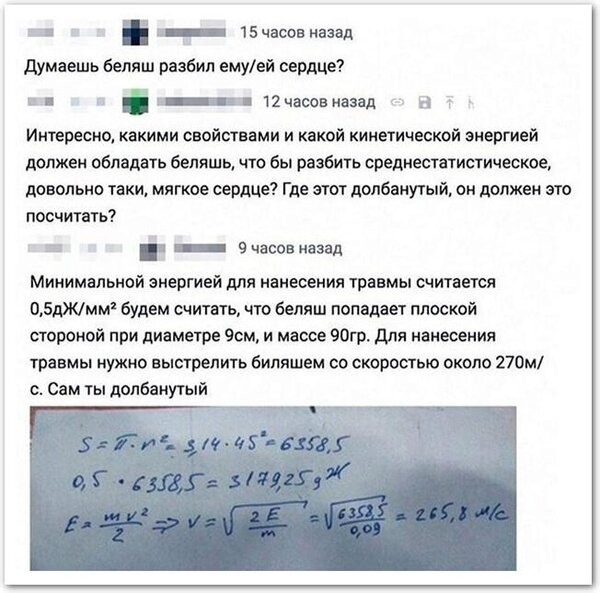 15 часов назад
Думаешь беляш разбил ему/ей сердце?
12 часов назад
Интересно, какими свойствами и какой кинетической энергией
должен обладать беляшь, что бы разбить среднестатистическое,
довольно таки, мягкое сердце? Где этот долбанутый, он должен это
посчитать?
9 часов назад
Минимальной энергией для нанесения травмы считается
0,5дЖ/мм² будем считать, что беляш попадает плоской
стороной при диаметре 9см, и массе 90гр. Для нанесения
травмы нужно выстрелить биляшем со скоростью около 270м/
с. Сам ты долбанутый
S = π · r² = 3,14 · 45² = 6358,5
0,5 · 6358,5 = 3179,25 дЖ
E = mv²/2 => v = √(2E/m) = √(6358,5/0,09) = 265,8 м/с